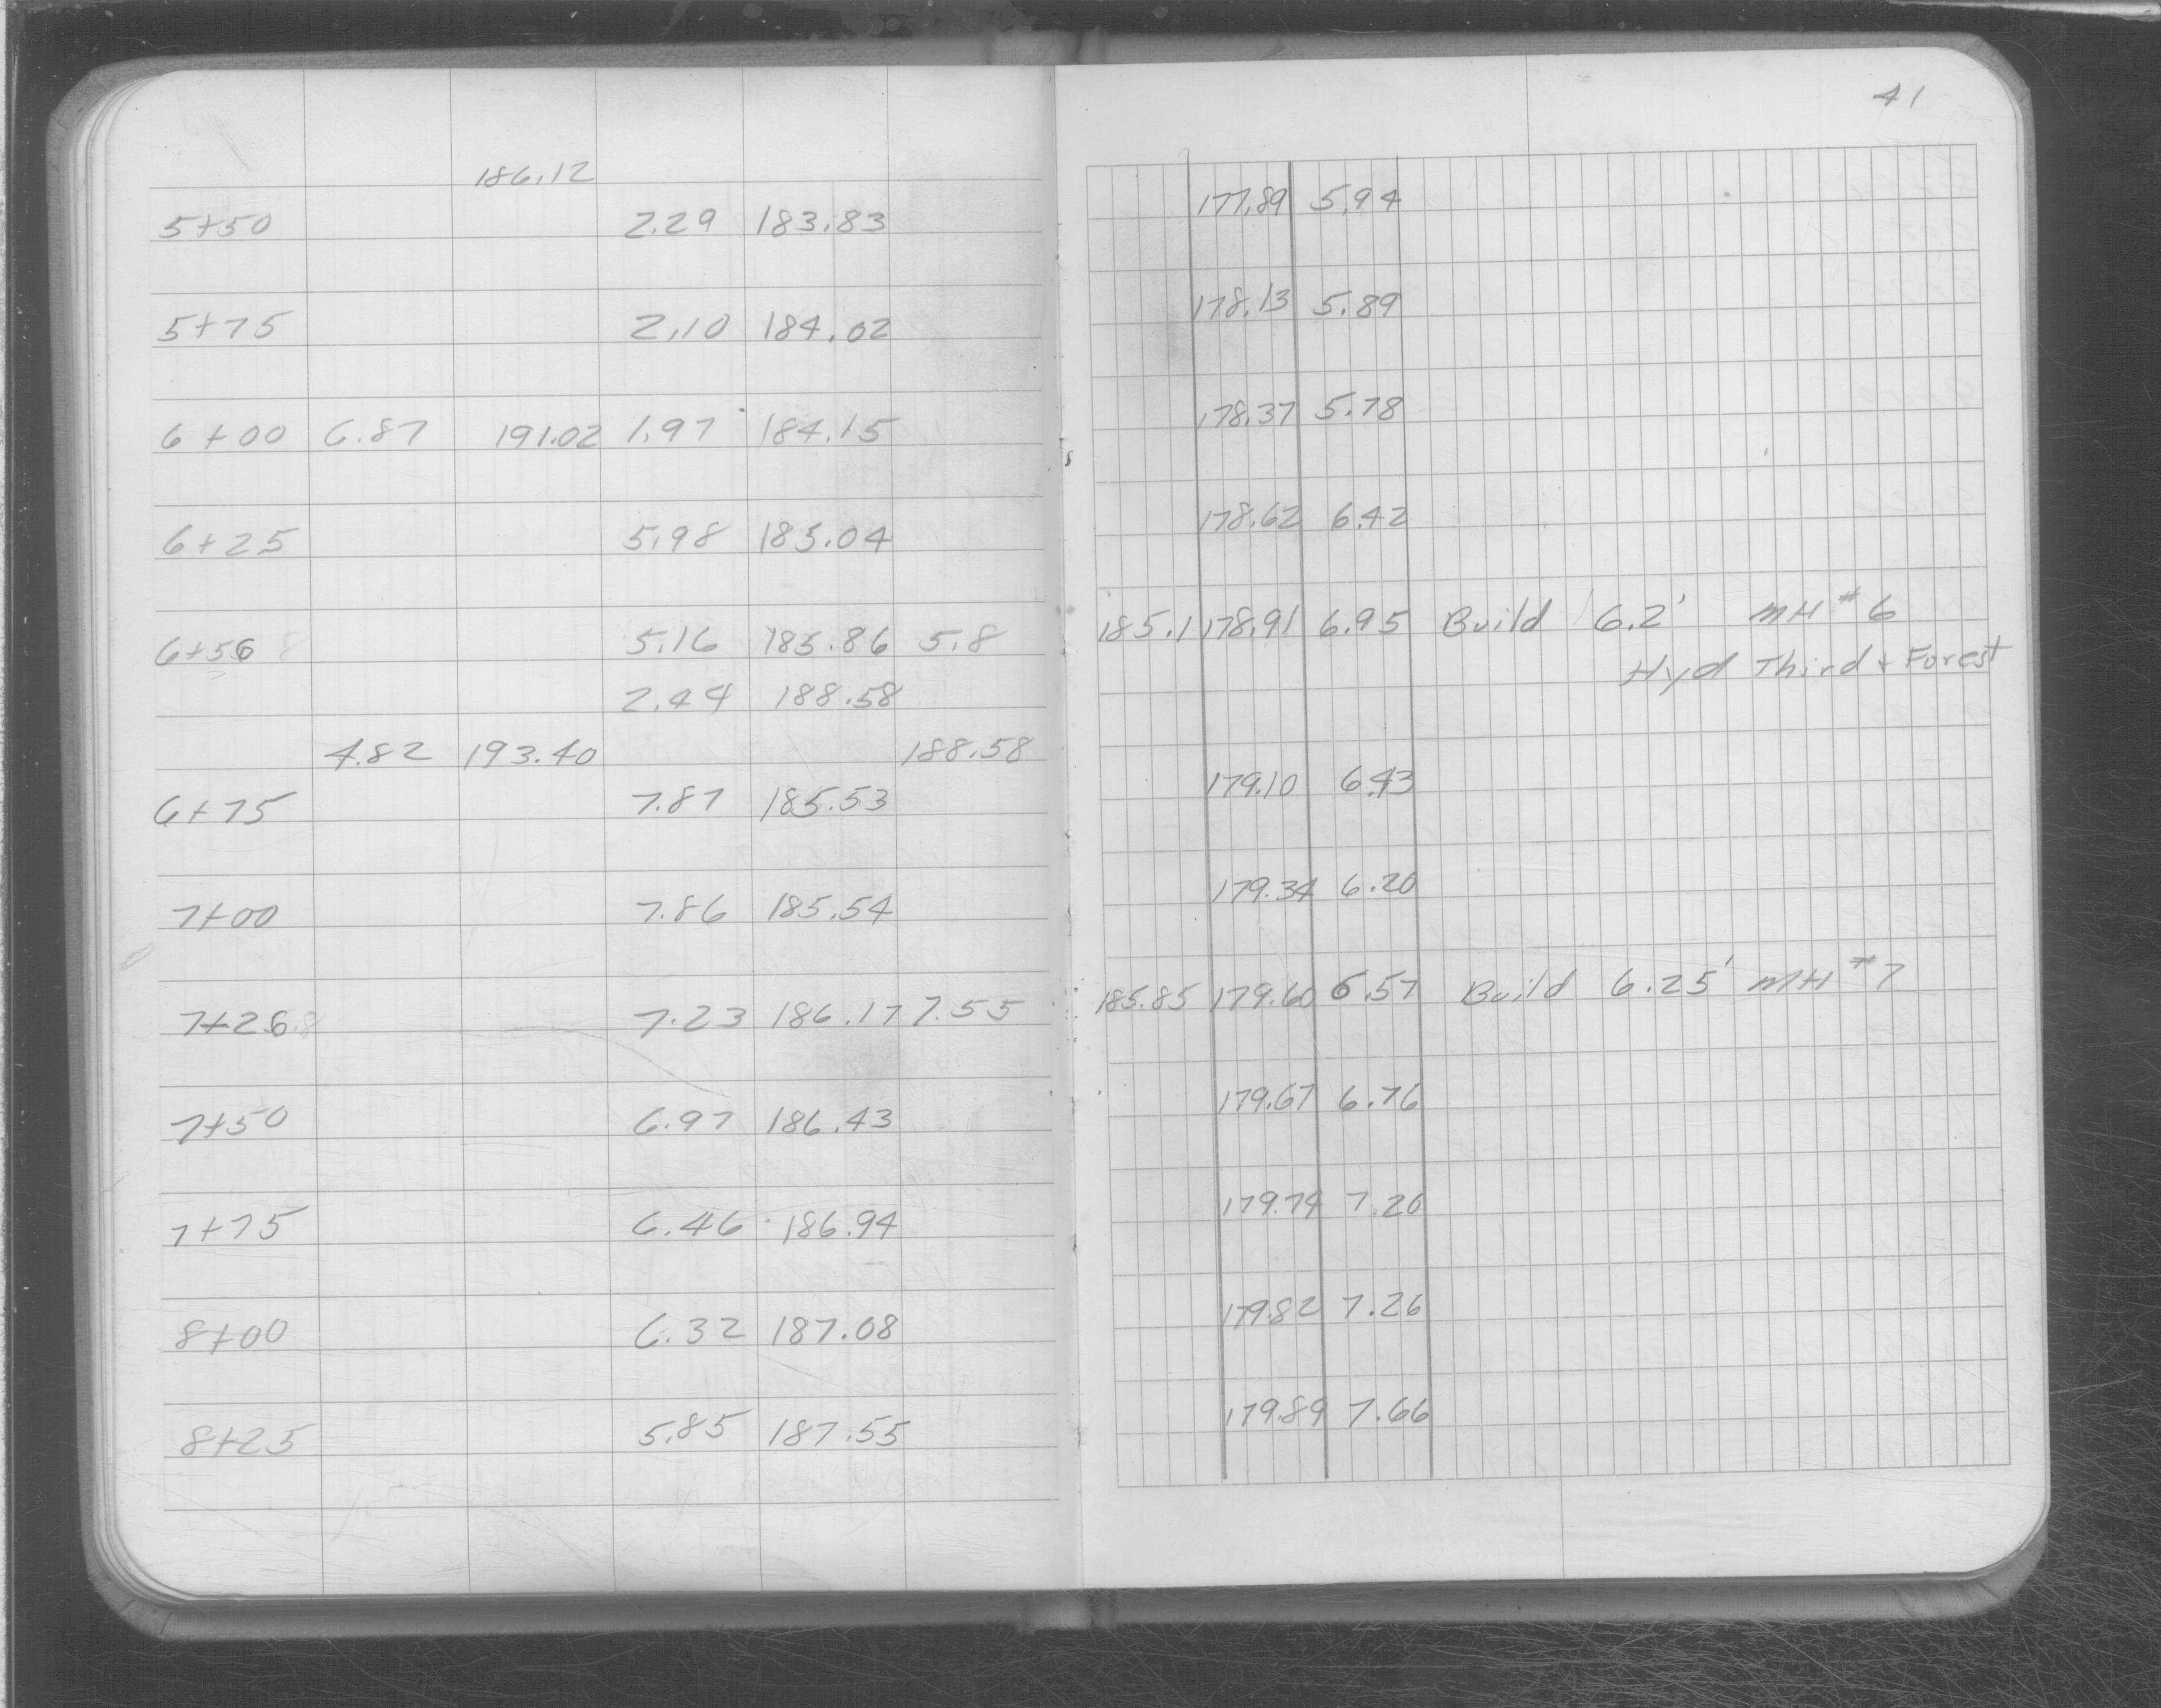 41
186.12
5+50 2.29 183.83 177.89 5.94
5+75 2.10 184.02 178.13 5.89
6+00 6.87 191.02 1.97 184.15 178.37 5.78
6+25 5.98 185.04 178.62 6.42
6+56 5.16 185.86 5.8 185.1 178.91 6.95 Build 6.2' MH #6
2.44 188.58 Hyd Third + Forest
4.82 193.40 188.58
6+75 7.87 185.53 179.10 6.43
7+00 7.86 185.54 179.34 6.20
7+26.8 7.23 186.17 7.55 185.85 179.60 6.57 Build 6.25' MH #7
7+50 6.97 186.43 179.67 6.76
7+75 6.46 186.94 179.74 7.20
8+00 6.32 187.08 179.82 7.26
8+25 5.85 187.55 179.89 7.66